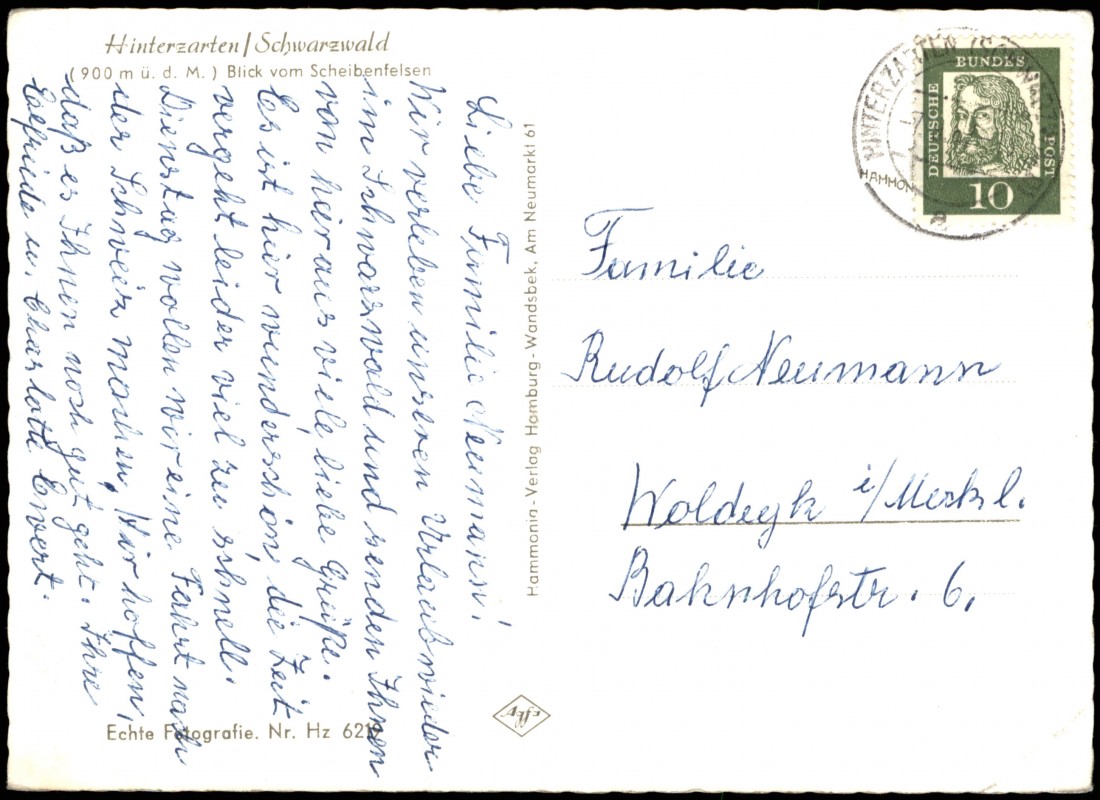 Hinterzarten/Schwarzwald
(900 m ü. d. M.) Blick vom Scheibenfelsen
Liebe Familie Neumann!
Wir verleben unseren Urlaub wieder
im Schwarzwald und senden Ihnen
von hier aus viele liebe Grüße.
Es ist hier wunderschön, die Zeit
vergeht leider viel zu schnell.
Dienstag wollen wir eine Fahrt nach
der Schweiz machen, Wir hoffen,
daß es Ihnen noch gut geht. Ihre
Elfriede u. Charlotte Ewert.
Echte Fotografie. Nr. Hz 621
Hammonia-Verlag Hamburg-Wandsbek, Am Neumarkt 61
Agfa
HINTERZARTEN
HAMMON
DEUTSCHE
BUNDES
POST
10
Familie
Rudolf Neumann
Woldegk i/Meckl.
Bahnhofstr. 6.